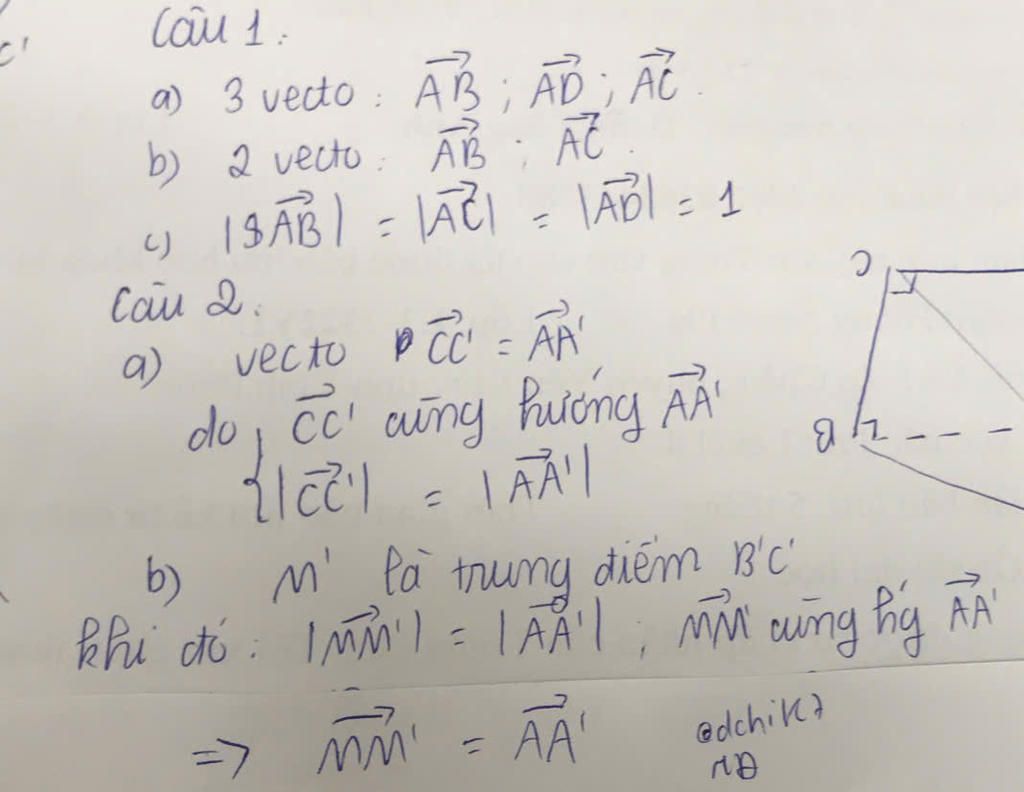 C'
Câu 1:
a) 3 vecto : $\overrightarrow{AB}$ ; $\overrightarrow{AD}$ ; $\overrightarrow{AC}$.
b) 2 vecto : $\overrightarrow{AB}$ ; $\overrightarrow{AC}$.
c) |$\overrightarrow{AB}$| = |$\overrightarrow{AC}$| = |$\overrightarrow{AD}$| = 1
Câu 2:
a) vecto $\overrightarrow{CC'}$ = $\overrightarrow{AA'}$
do { $\overrightarrow{CC'}$ cùng hướng $\overrightarrow{AA'}$
|$\overrightarrow{CC'}$| = |$\overrightarrow{AA'}$|
b) M' là trung điểm B'C'
khi đó : |$\overrightarrow{MM'}$| = |$\overrightarrow{AA'}$| ; $\overrightarrow{MM'}$ cùng hg $\overrightarrow{AA'}$
=> $\overrightarrow{MM'}$ = $\overrightarrow{AA'}$